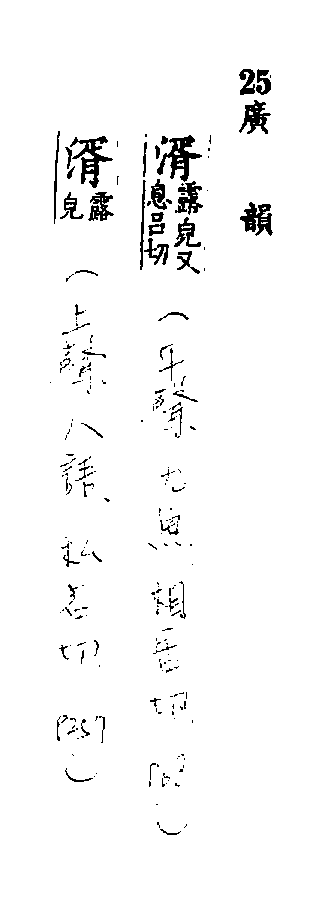 25廣韻
湑露皃又息呂切（平聲九魚相居切）
湑露皃（上聲八語、私呂切 P257）